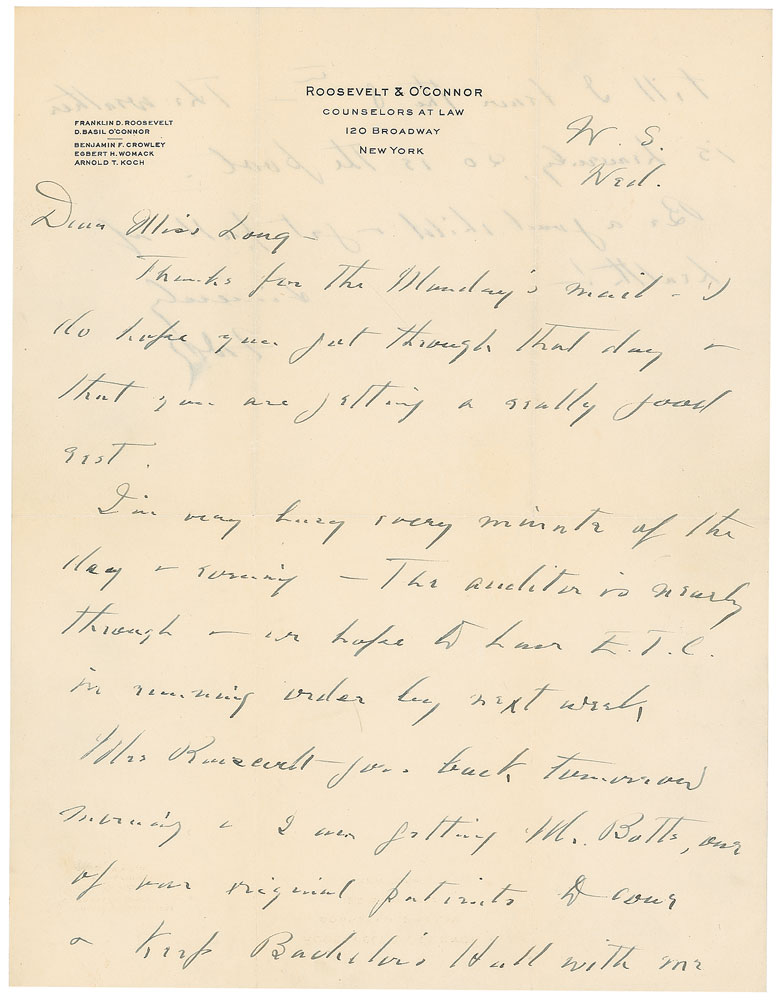 ROOSEVELT & O'CONNOR
COUNSELORS AT LAW
120 BROADWAY
NEW YORK
FRANKLIN D. ROOSEVELT
D. BASIL O'CONNOR
BENJAMIN F. CROWLEY
EGBERT H. WOMACK
ARNOLD T. KOCH
W. S.
Wed.
Dear Miss Long –
Thanks for the Monday's mail – I
do hope you got through that day &
that you are getting a really good
rest.
I'm very busy every minute of the
day & evening – The auditor is nearly
through & we hope to have E. T. C.
in running order by next week,
Mrs Roosevelt goes back tomorrow
morning & I am getting Mr. Botts, one
of our original patients to come
& keep Bachelor's Hall with me